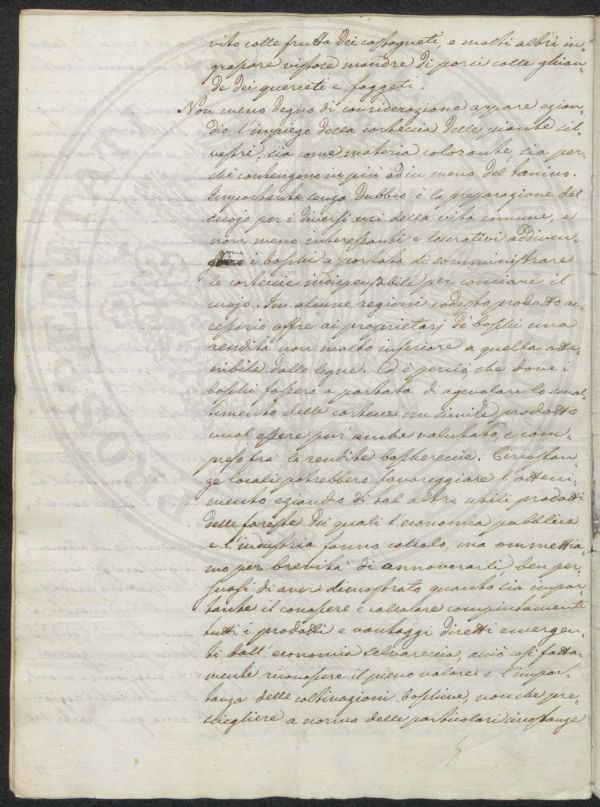 vito colle frutta dei castagneti, e molti altri in-
grassare vistose mandre di porci colle ghian-
de dei querceti e faggeti.
Non meno degno di considerazione appare ezian-
dio l'impiego della corteccia delle piante sil-
vestri, sia come materia colorante, sia per-
chè contengono in più od in meno del tanino.
Importante senza dubbio è la preparazione del
cuojo per i diversi usi della vita comune, e
non meno interessanti e lucrativi addiven-
gono i boschi a portata di somministrare
le corteccie indispensabili per conciare il
cuojo. In alcune regioni codesto prodotto ac-
cessorio offre ai proprietarj de' boschi una
rendita non molto inferiore a quella atte-
nibile dalle legne. Ed è perciò che dove i
boschi fossero a portata di agevolare lo smal-
timento delle cortecce un simile prodotto
vuol essere pur anche valutato, e com-
preso fra le rendite boschereccie. Circostan-
ze locali potrebbero favoreggiare l'otteni-
mento eziandio di tal altri utili prodotti
delle foreste dei quali l'economia pubblica
e l'industria fanno calcolo, ma ommettia-
mo per brevità di annoverarli, ben per-
suasi di aver dimostrato quanto sia impor-
tante il conoscere e calcolare compiutamente
tutti i prodotti e vantaggi diretti emergen-
ti dall'economia selvareccia, onde così fatta-
mente riconoscere il pieno valore e l'impor-
tanza delle coltivazioni boschive, non che pre-
scegliere a norma delle particolari circostanze
PROSPERITATI